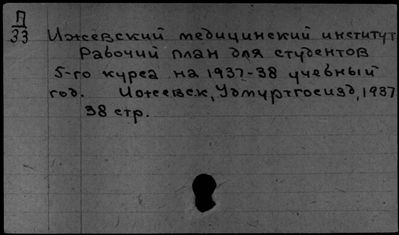 П
33
Ижевский медицинский институт
Рабочий план для студентов
5-го курса на 1937-38 учебный
год. Ижевск, Удмуртгосизд, 1937
38 стр.